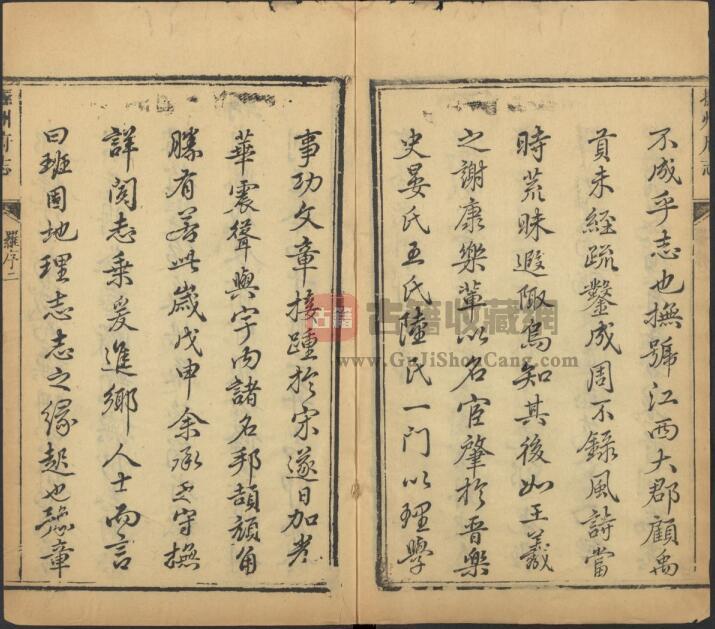 不成乎志也撫號江西大郡顧禹
貢未經疏鑿成周不錄風詩當
時荒昧遐陬烏知其後如王羲
之謝康樂輩以名宦肇於晉樂
史晏氏王氏陸氏一門以理學
事功文章接踵於宋遂日加光
華震聳與宇內諸名邦頡頏角
勝有若此歲戊申余承乏守撫
詳閱志乘爰進鄉人士而言
曰班固地理志志之緣起也豫章
撫州府志
羅序二
撫州府志
古籍
古籍收藏網
www.GuJiShouCang.com